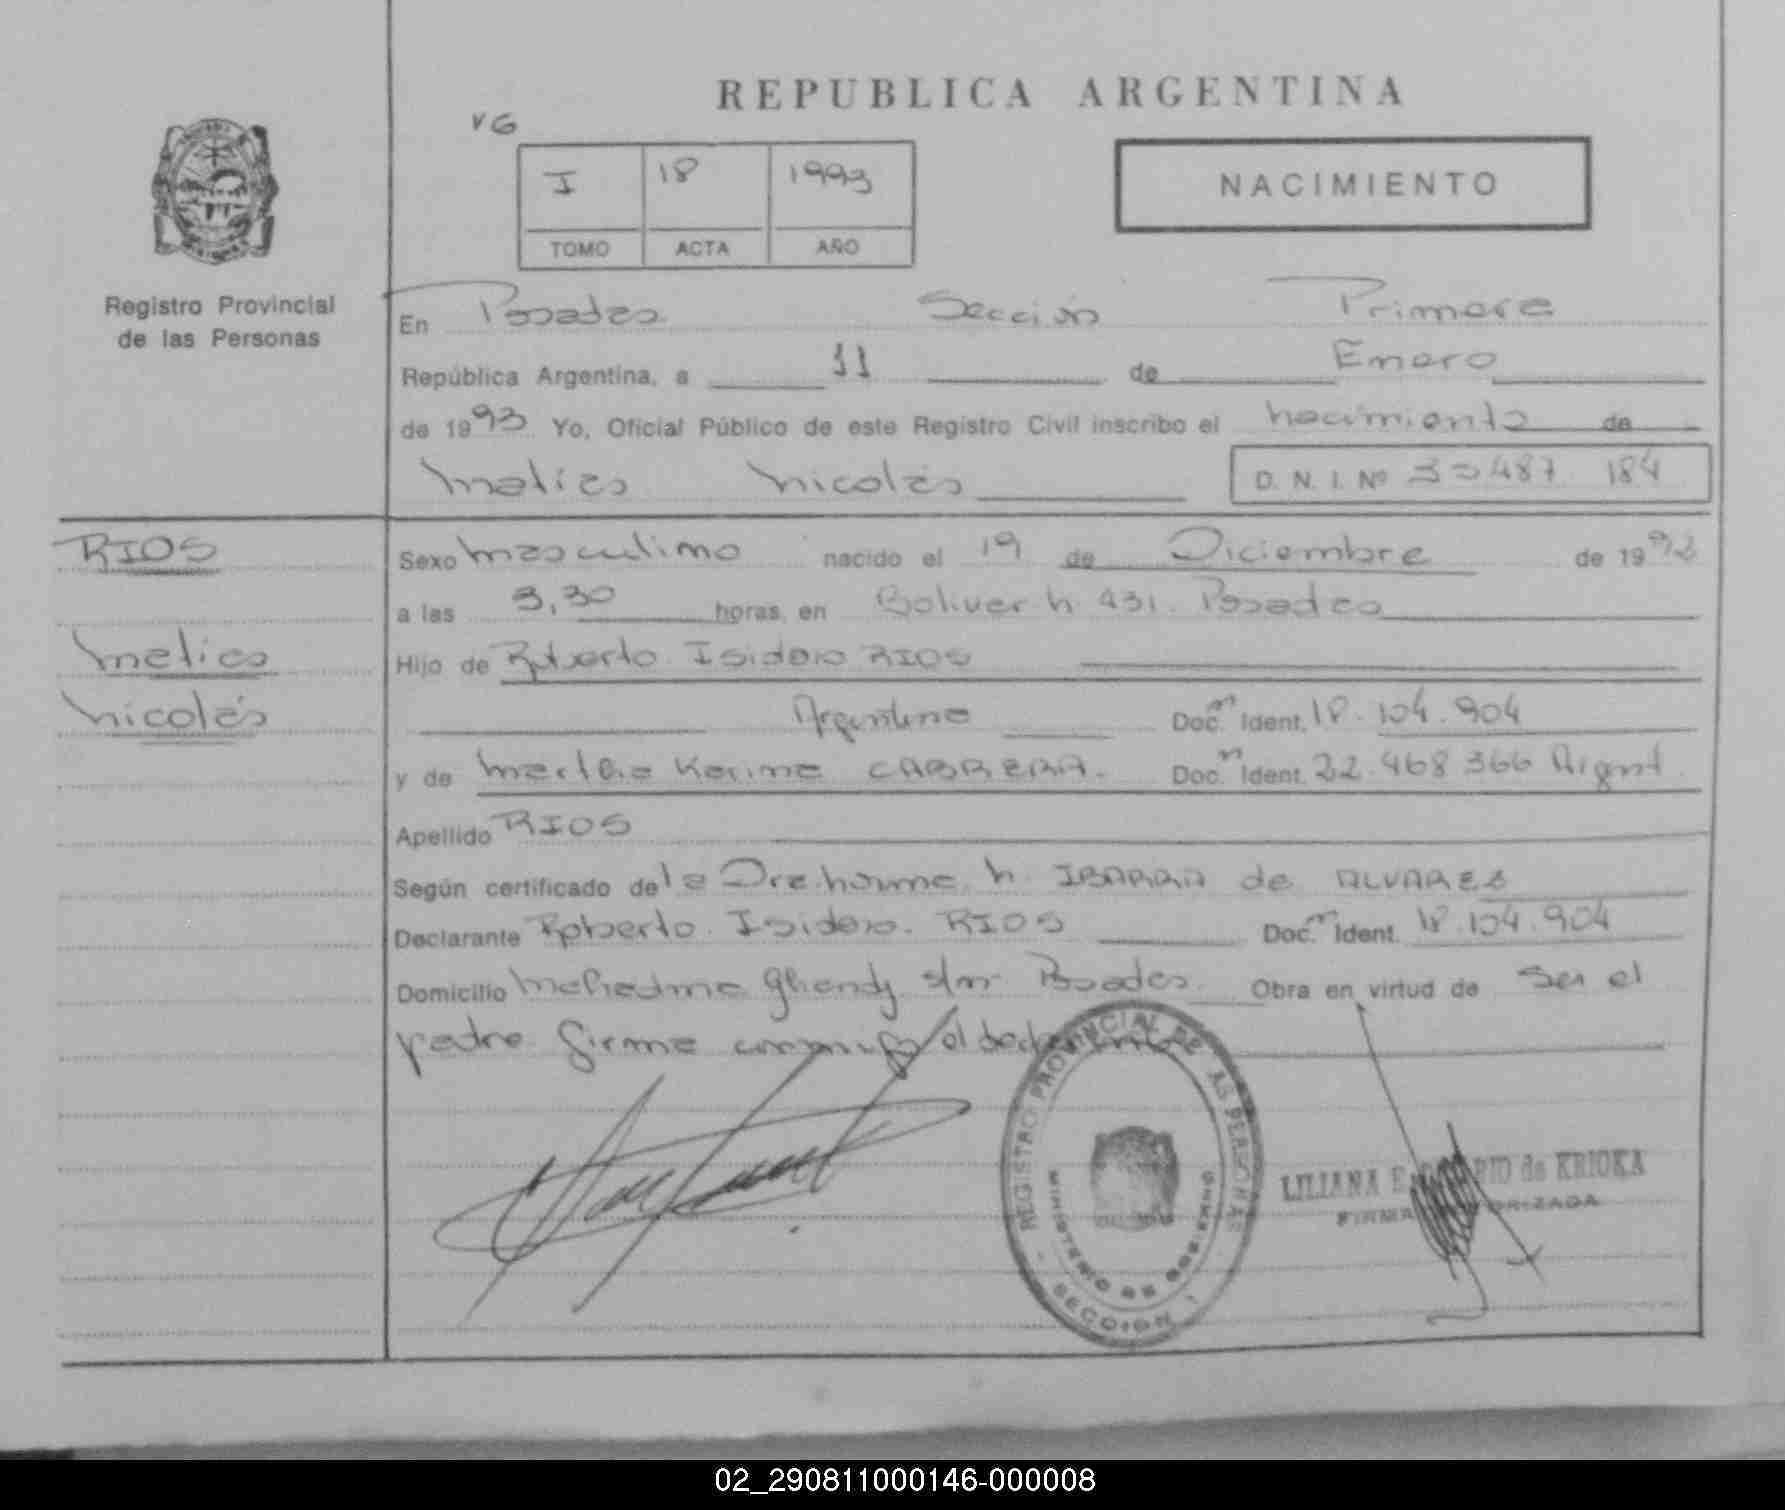 REPUBLICA ARGENTINA
VG
I 18 1993
TOMO ACTA AÑO
NACIMIENTO
Registro Provincial
de las Personas
En Posadas Sección Primera
República Argentina, a 11 de Enero
de 1993 Yo, Oficial Público de este Registro Civil inscribo el nacimiento de
Matias Nicolás D. N. I. Nº 487 184
RIOS
Sexo masculino nacido el 19 de Diciembre de 1992
a las 3,30 horas, en Bolivar n 431. Posadas
Matias
Hijo de Roberto Isidoro RIOS
Nicolás
Argentino Doc.m Ident. 18.104.904
y de Karina CABRERA. Doc.m Ident. 22.468 366 Argent.
Apellido RIOS
Según certificado de la Dra. Norma N. IBARRA de ALVAREZ
Declarante Roberto Isidoro. RIOS Doc.m Ident. 18.104.904
Domicilio Mahadma Ghandy s/nº Posadas. Obra en virtud de ser el
padre firma conmigo el declarante
REGISTRO PROVINCIAL DE LAS PERSONAS
MINISTERIO DE GOBIERNO
SECCION 1
LILIANA E. de KRIOKA
FIRMA AUTORIZADA
02_290811000146-000008